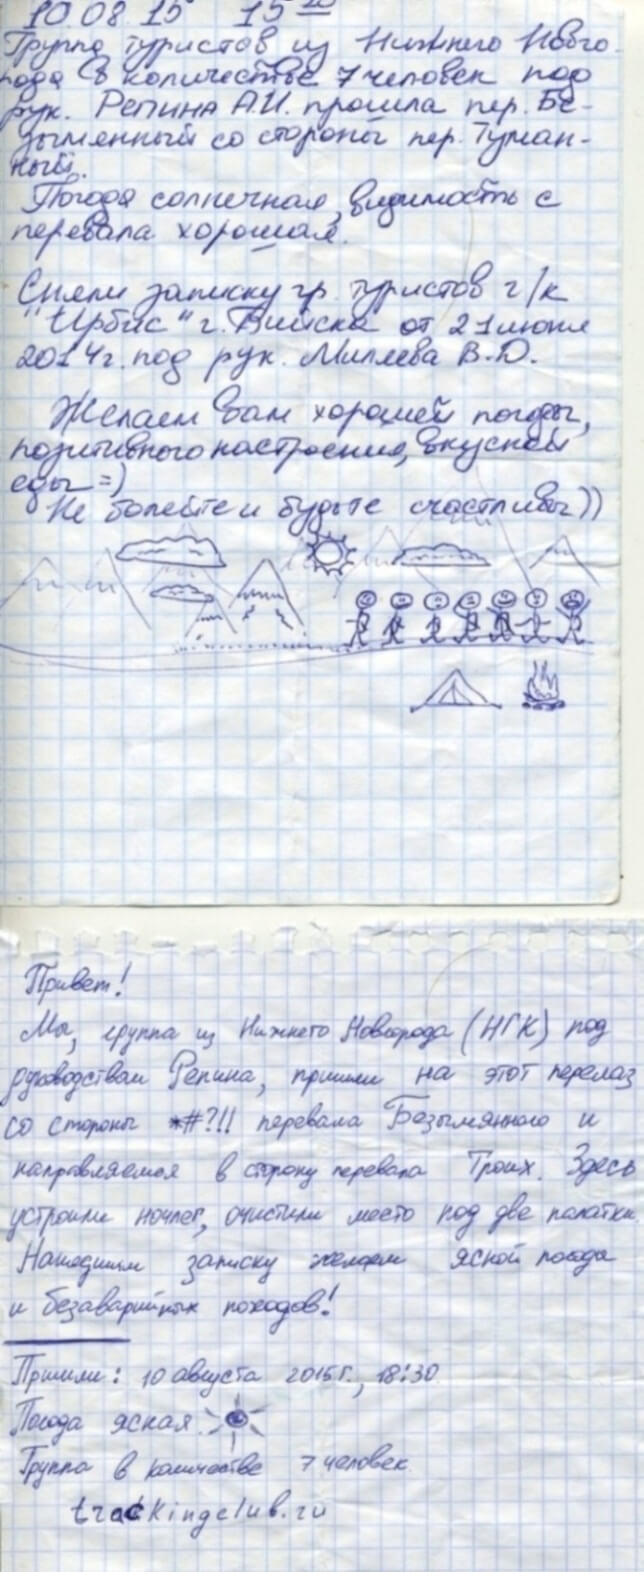 10.08.15 15
Группа туристов из Нижнего Новго-
рода в количестве 7 человек под
рук. Репина А.И. прошла пер. Бе-
зымянный со стороны пер. Туман-
ный.
Погода солнечная, видимость с
перевала хорошая.
Сняли записку гр. туристов г/к
"Ирбис" г. Бийска от 21 июля
2014г. под рук. Миляева В.Ю.
Желаем Вам хорошей погоды,
позитивного настроения, вкусной
еды =)
Не болейте и будьте счастливы))
Привет!
Мы, группа из Нижнего Новгорода (НГК) под
руководством Репина, пришли на этот перелаз
со стороны *#?!! перевала Безымянного и
направляемся в сторону перевала Троих. Здесь
устроили ночлег, очистили место под две палатки
Нашедшим записку желаем ясной погоды
и безаварийных походов!
Пришли: 10 августа 2015г., 18:30
Погода ясная.
Группа в количестве 7 человек
trackingclub.ru